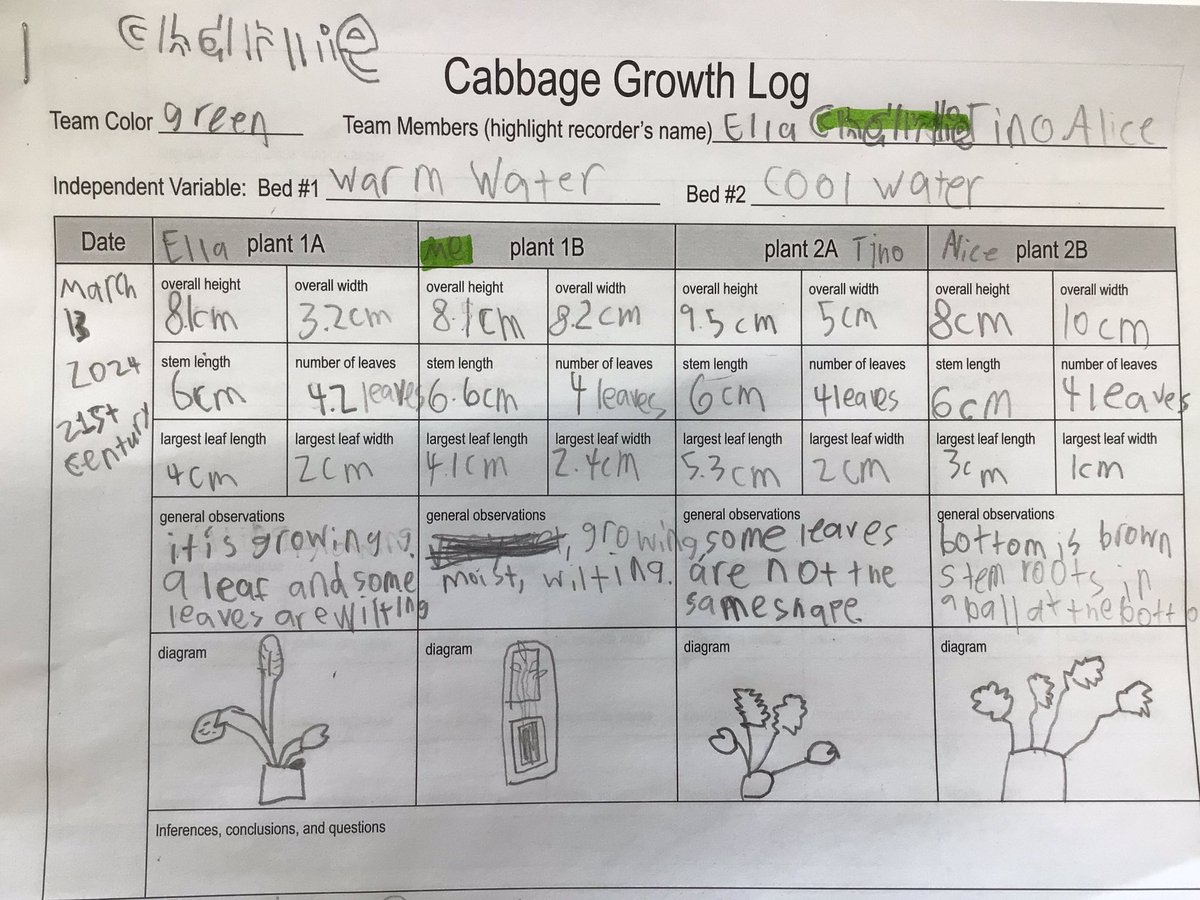 Charlie
Cabbage Growth Log
Team Color green Team Members (highlight recorder's name) Ella Charlie Tino Alice
Independent Variable: Bed #1 warm water Bed #2 cool water
Date Ella plant 1A me plant 1B plant 2A Tino Alice plant 2B
March
13
2024
21st
century
overall height overall width overall height overall width overall height overall width overall height overall width
8.1cm 3.2cm 8.1cm 8.2cm 9.5cm 5cm 8cm 10cm
stem length number of leaves stem length number of leaves stem length number of leaves stem length number of leaves
6cm 4.2 leaves 6.6cm 4 leaves 6cm 4 leaves 6cm 4 leaves
largest leaf length largest leaf width largest leaf length largest leaf width largest leaf length largest leaf width largest leaf length largest leaf width
4cm 2cm 4.1cm 2.4cm 5.3cm 2cm 3cm 1cm
general observations
it is growing.
a leaf and some
leaves are wilting
general observations
, growing,
moist, wilting.
general observations
some leaves
are not the
same shape.
general observations
bottom is brown
stem roots in
a ball at the botto
diagram diagram diagram diagram
Inferences, conclusions, and questions